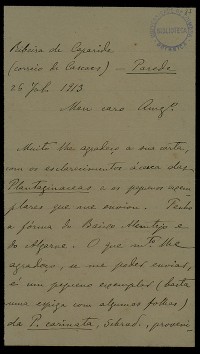 BIBLIOTHECA
BOTANICA
Ribeira de Caparide
(correio de Cascaes) — Parede
26 Feb. 1913
Meu caro Amgº.
Muito lhe agradeço a sua carta,
com os esclarecimentos ácerca das
Plantaginaceas e os pequenos exem-
plares que me enviou. Tenho
a fórma do Baixo Alemtejo e
do Algarve. O que mtº. lhe
agradeço, se me poder enviar,
é um pequeno exemplar (basta
uma espiga com algumas folhas)
da P. carinata, Schrad., proveni